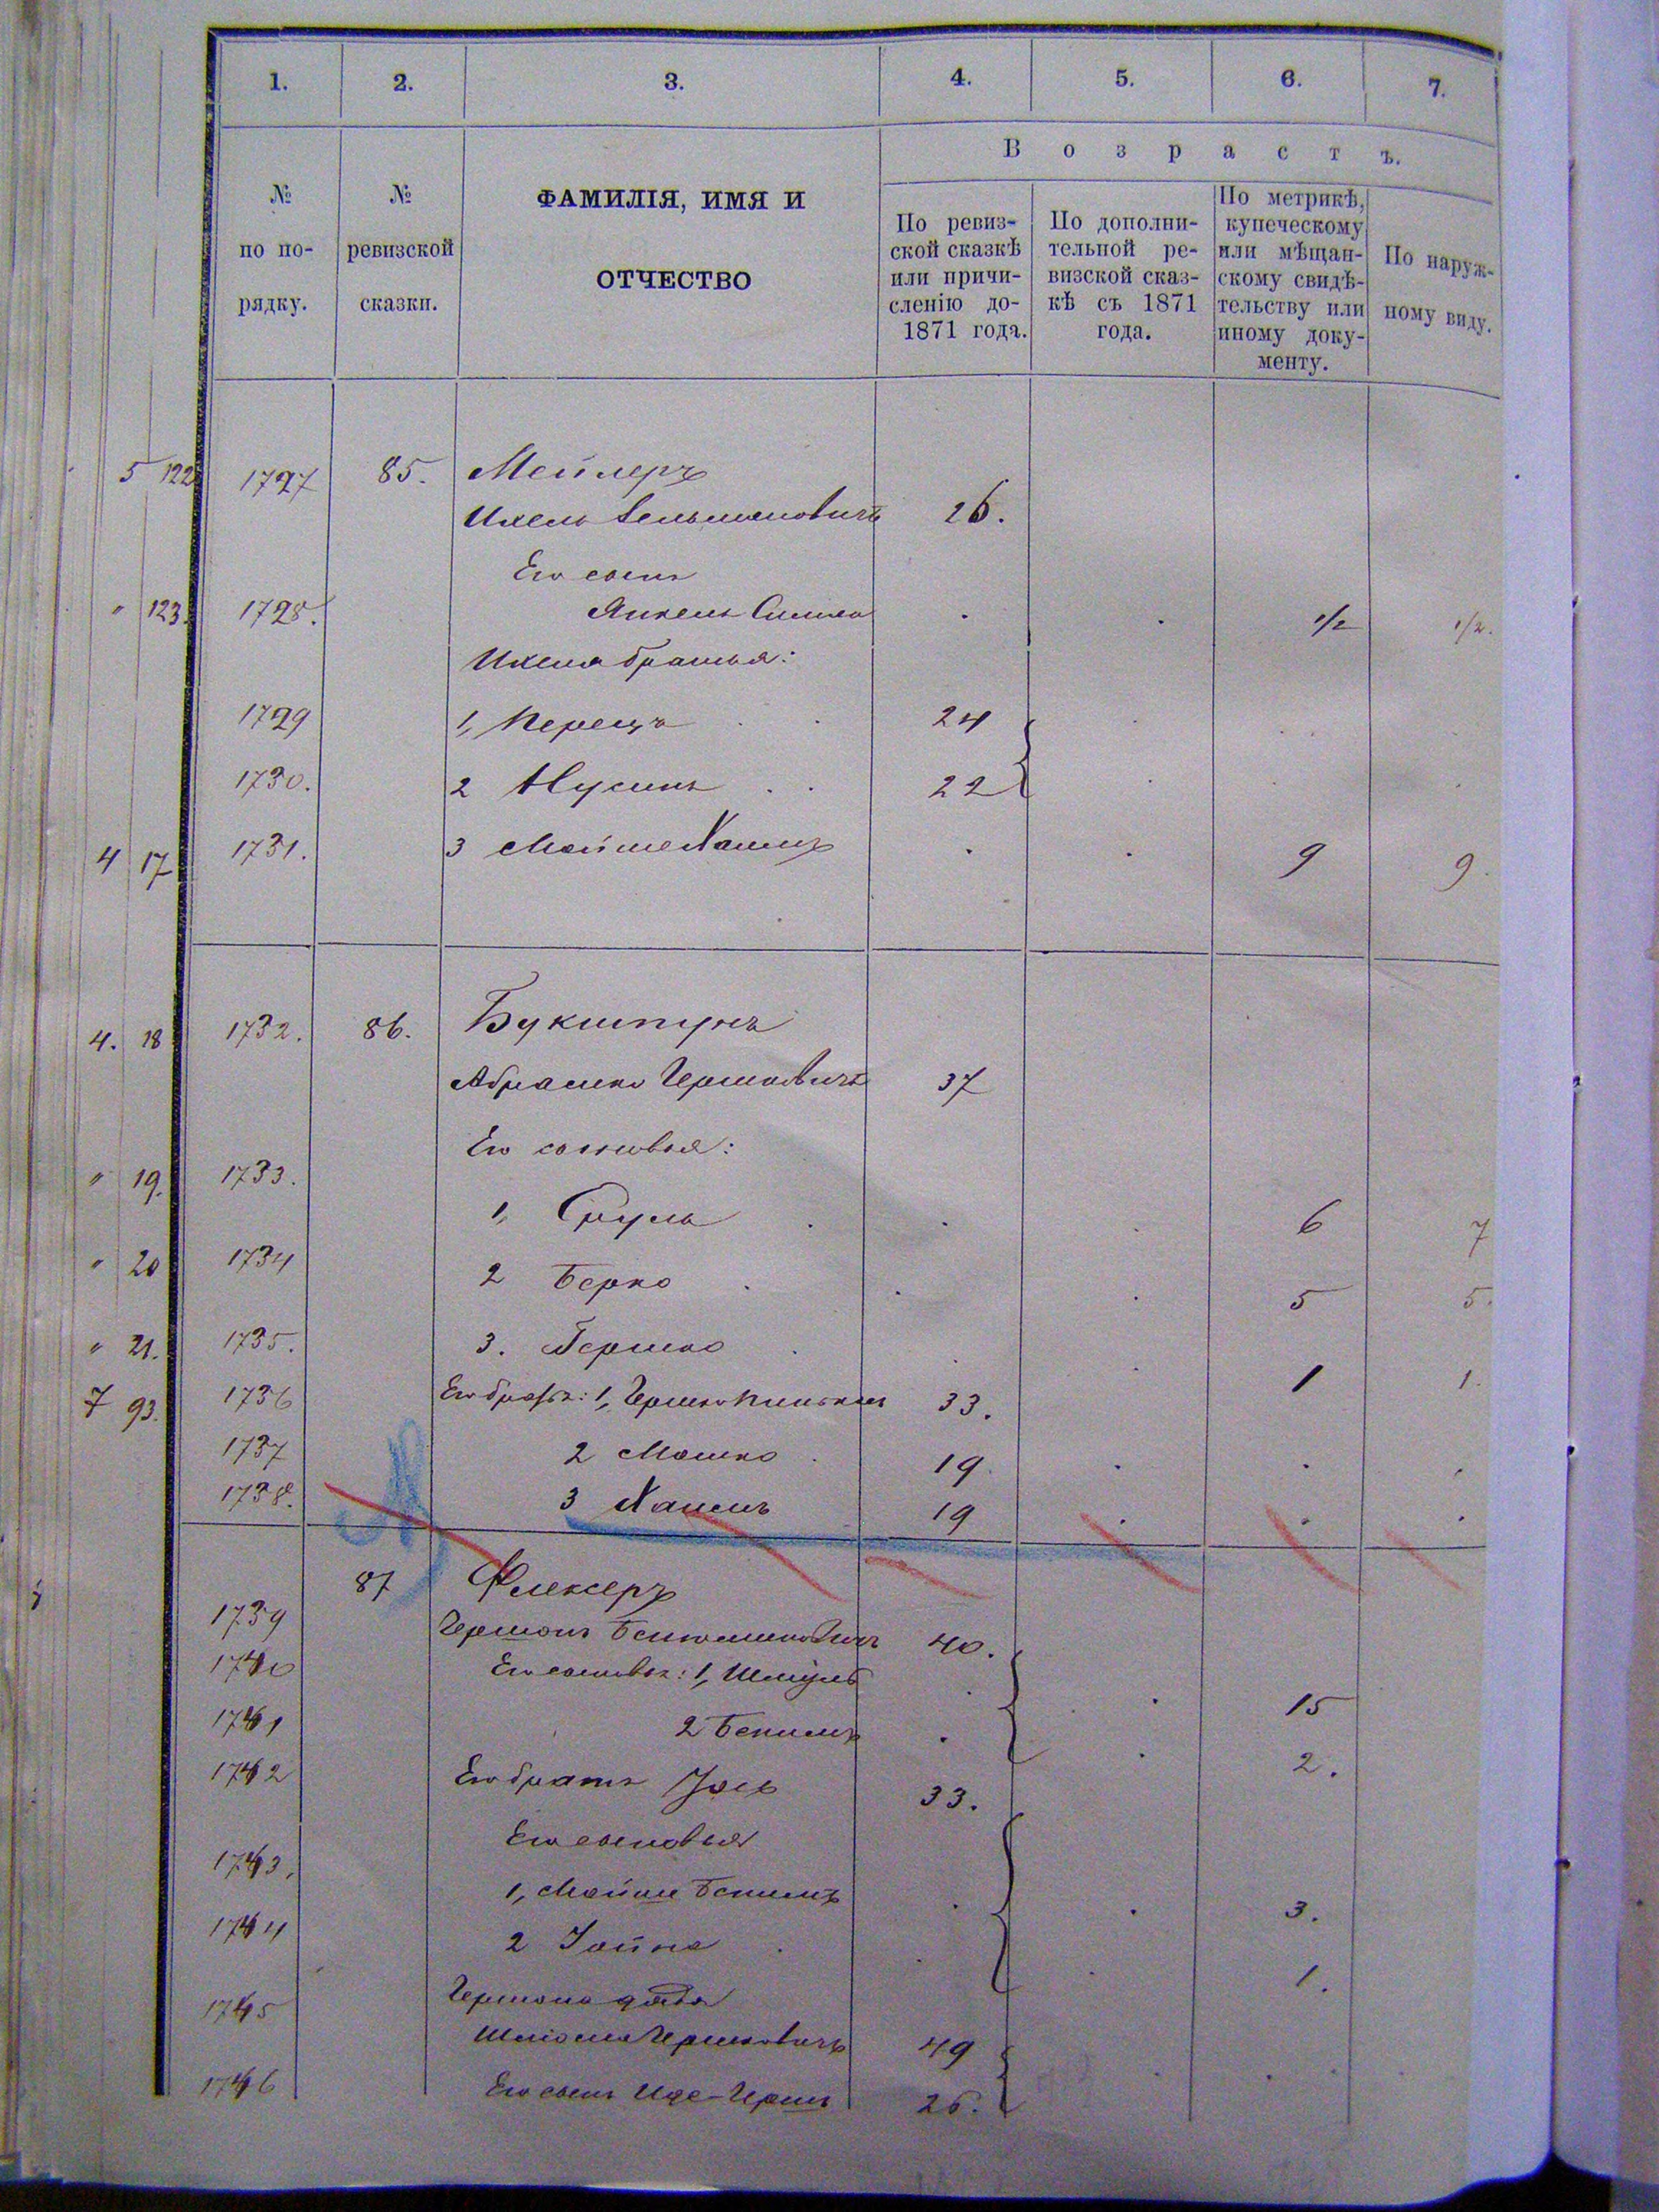 1. 2. 3. 4. 5. 6. 7.
№ по порядку.
№ ревизской сказки.
ФАМИЛІЯ, ИМЯ И
ОТЧЕСТВО
Возрастъ.
По ревиз-
ской сказкѣ
или причи-
сленію до
1871 года.
По дополни-
тельной ре-
визской сказ-
кѣ съ 1871
года.
По метрикѣ,
купеческому
или мѣщан-
скому свидѣ-
тельству или
иному доку-
менту.
По наруж-
ному виду.
5 122 1727 85. Мейлеръ
Ихель Зельмановичъ 26.
Его сынъ
" 123. 1728. Янкель Симха . . 1/2 1/2.
Ихеля братья:
1729 1, Перецъ 24
1730. 2 Нусинъ 22
4 17 1731. 3 Мойше Хаимъ . . 9 9.
4. 18 1732. 86. Букштунъ
Абрашко Гершковичъ 37
Его сыновья:
" 19. 1733. 1, Сруль 6 7
" 20 1734 2 Берко 5 5.
" 21. 1735. 3. Гершко 1 1.
7 93. 1736 Его братья: 1, Гершко Пинькасъ 33.
1737 2 Мошко 19.
1738. 3 Хаимъ 19
87 Флексеръ
1739 Гершонъ Беньюминовичъ 40.
1740 Его сыновья: 1, Шмуль 15
1741 2 Беніимъ 2.
1742 Его братъ Іось 33.
Его сыновья
1743. 1, Мойше Беніимъ 3.
1744 2 Іойна 1.
Гершона дядя
1745 Шліома Гершковичъ 49
1746 Его сынъ Иде-Гершъ 26.